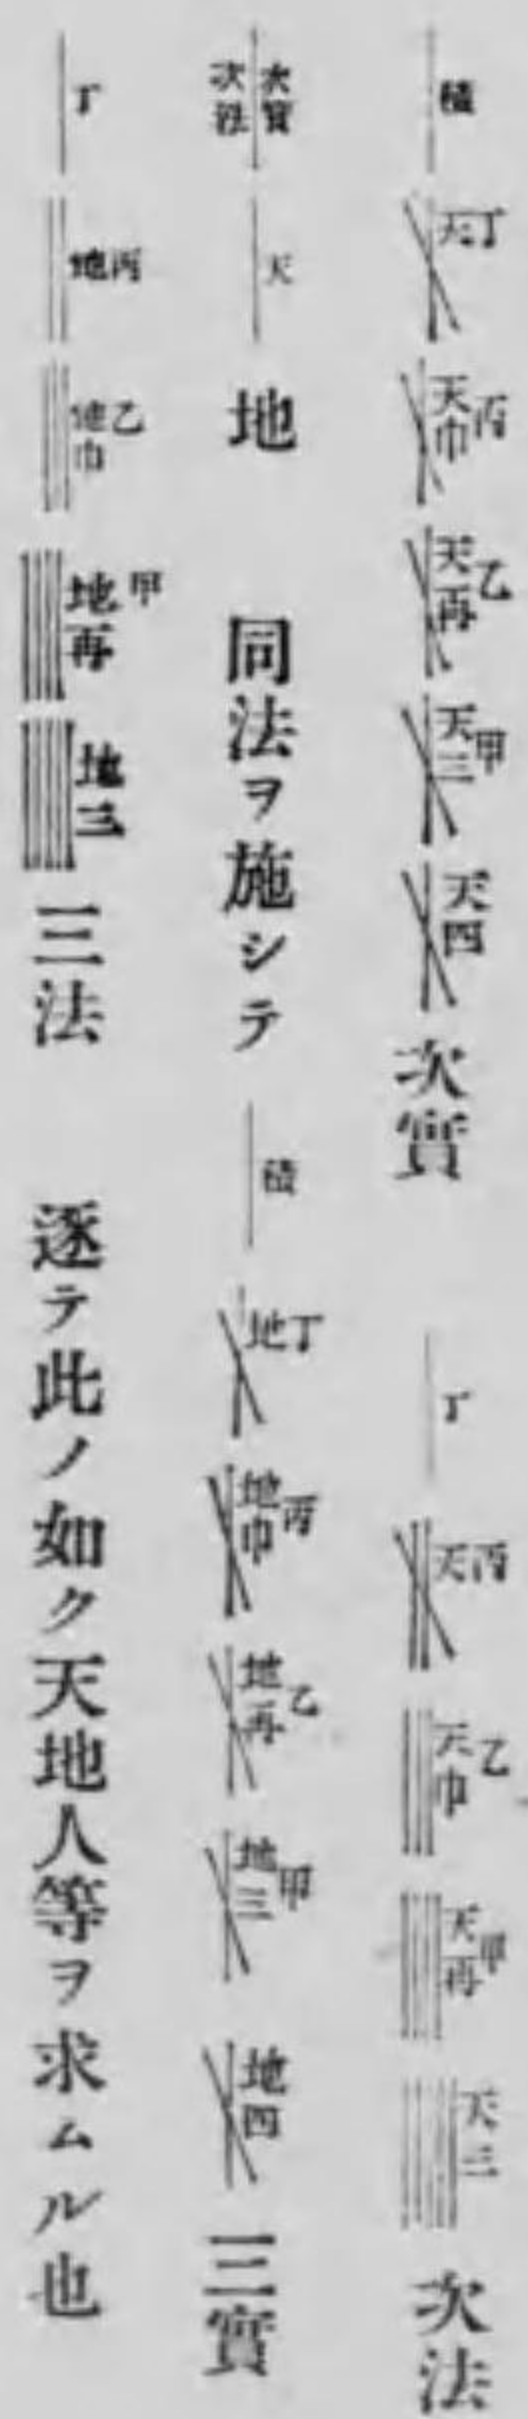 積 天丁 天巾丙 天再乙 天三甲 天四 次實 丁 天丙 天巾乙 天再甲 天三 次法
次實 次法 天 地 同法ヲ施シテ 積 地丁 地巾丙 地再乙 地三甲 地四 三實
丁 地丙 地巾乙 地再甲 地三 三法 逐テ此ノ如ク天地人等ヲ求ムル也